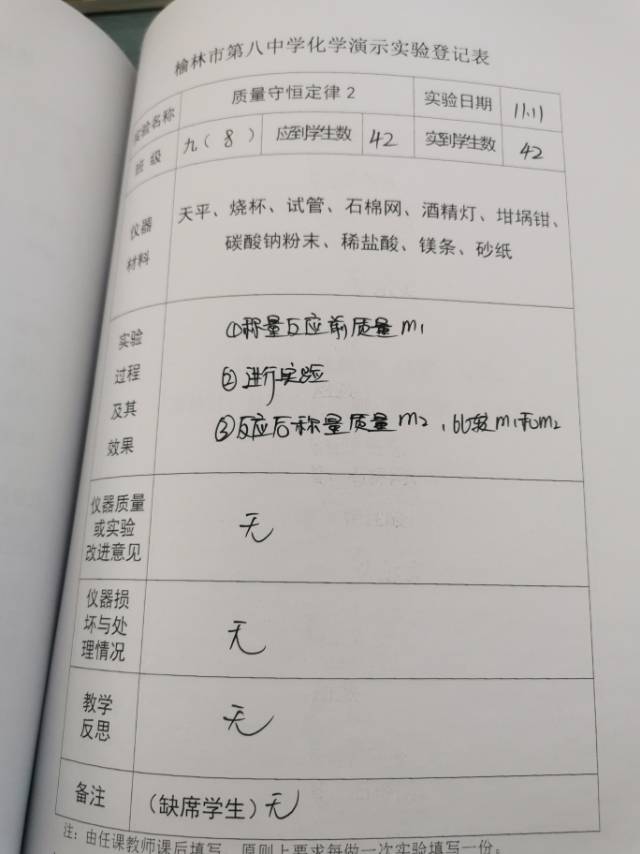 榆林市第八中学化学演示实验登记表
实验名称 质量守恒定律2 实验日期 11.11
班 级 九(8) 应到学生数 42 实到学生数 42
仪器
材料
天平、烧杯、试管、石棉网、酒精灯、坩埚钳、
碳酸钠粉末、稀盐酸、镁条、砂纸
实验
过程
及其
效果
①称量反应前质量m1
②进行实验
③反应后称量质量m2,比较m1和m2
仪器质量
或实验
改进意见
无
仪器损
坏与处
理情况
无
教学
反思
无
备注 (缺席学生)无
注:由任课教师课后填写,原则上要求每做一次实验填写一份。